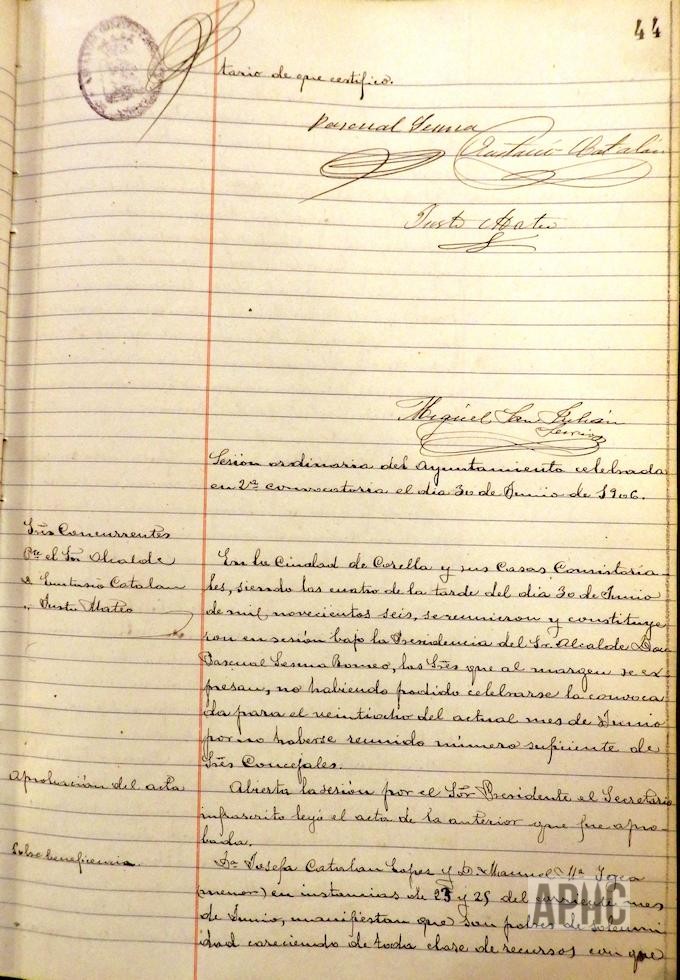 44
tario de que certifico.
Pascual Sesma
Eustasio Catalán
Justo Mateo
Miguel San Julián
Secrio
Sesión ordinaria del Ayuntamiento celebrada
en 2ª convocatoria el dia 30 de Junio de 1906.
Sres Concurrentes
Pte el Sr Alcalde
D. Eustasio Catalan
" Justo Mateo
En la Ciudad de Corella y sus Casas Consistoria-
les, siendo las cuatro de la tarde del dia 30 de Junio
de mil novecientos seis, se reunieron y constituye
ron en sesión bajo la Presidencia del Sr. Alcalde Don
Pascual Sesma Romeo, los Sres que al margen se ex-
presan, no habiendo podido celebrarse la convoca
da para el veintiocho del actual mes de Junio
por no haberse reunido número suficiente de
Sres Concejales.
Aprobación del acta
Abierta la sesión por el Sor Presidente el Secretario
infrascrito leyó el acta de la anterior que fue apro-
bada.
Sobre beneficencia.
Dª Josefa Catalan Lopez y D. Manuel Mª
(menor) en instancias de 23 y 25 del corriente mes
de Junio, manifiestan que son pobres de solemni
dad careciendo de toda clase de recursos con que
APHC